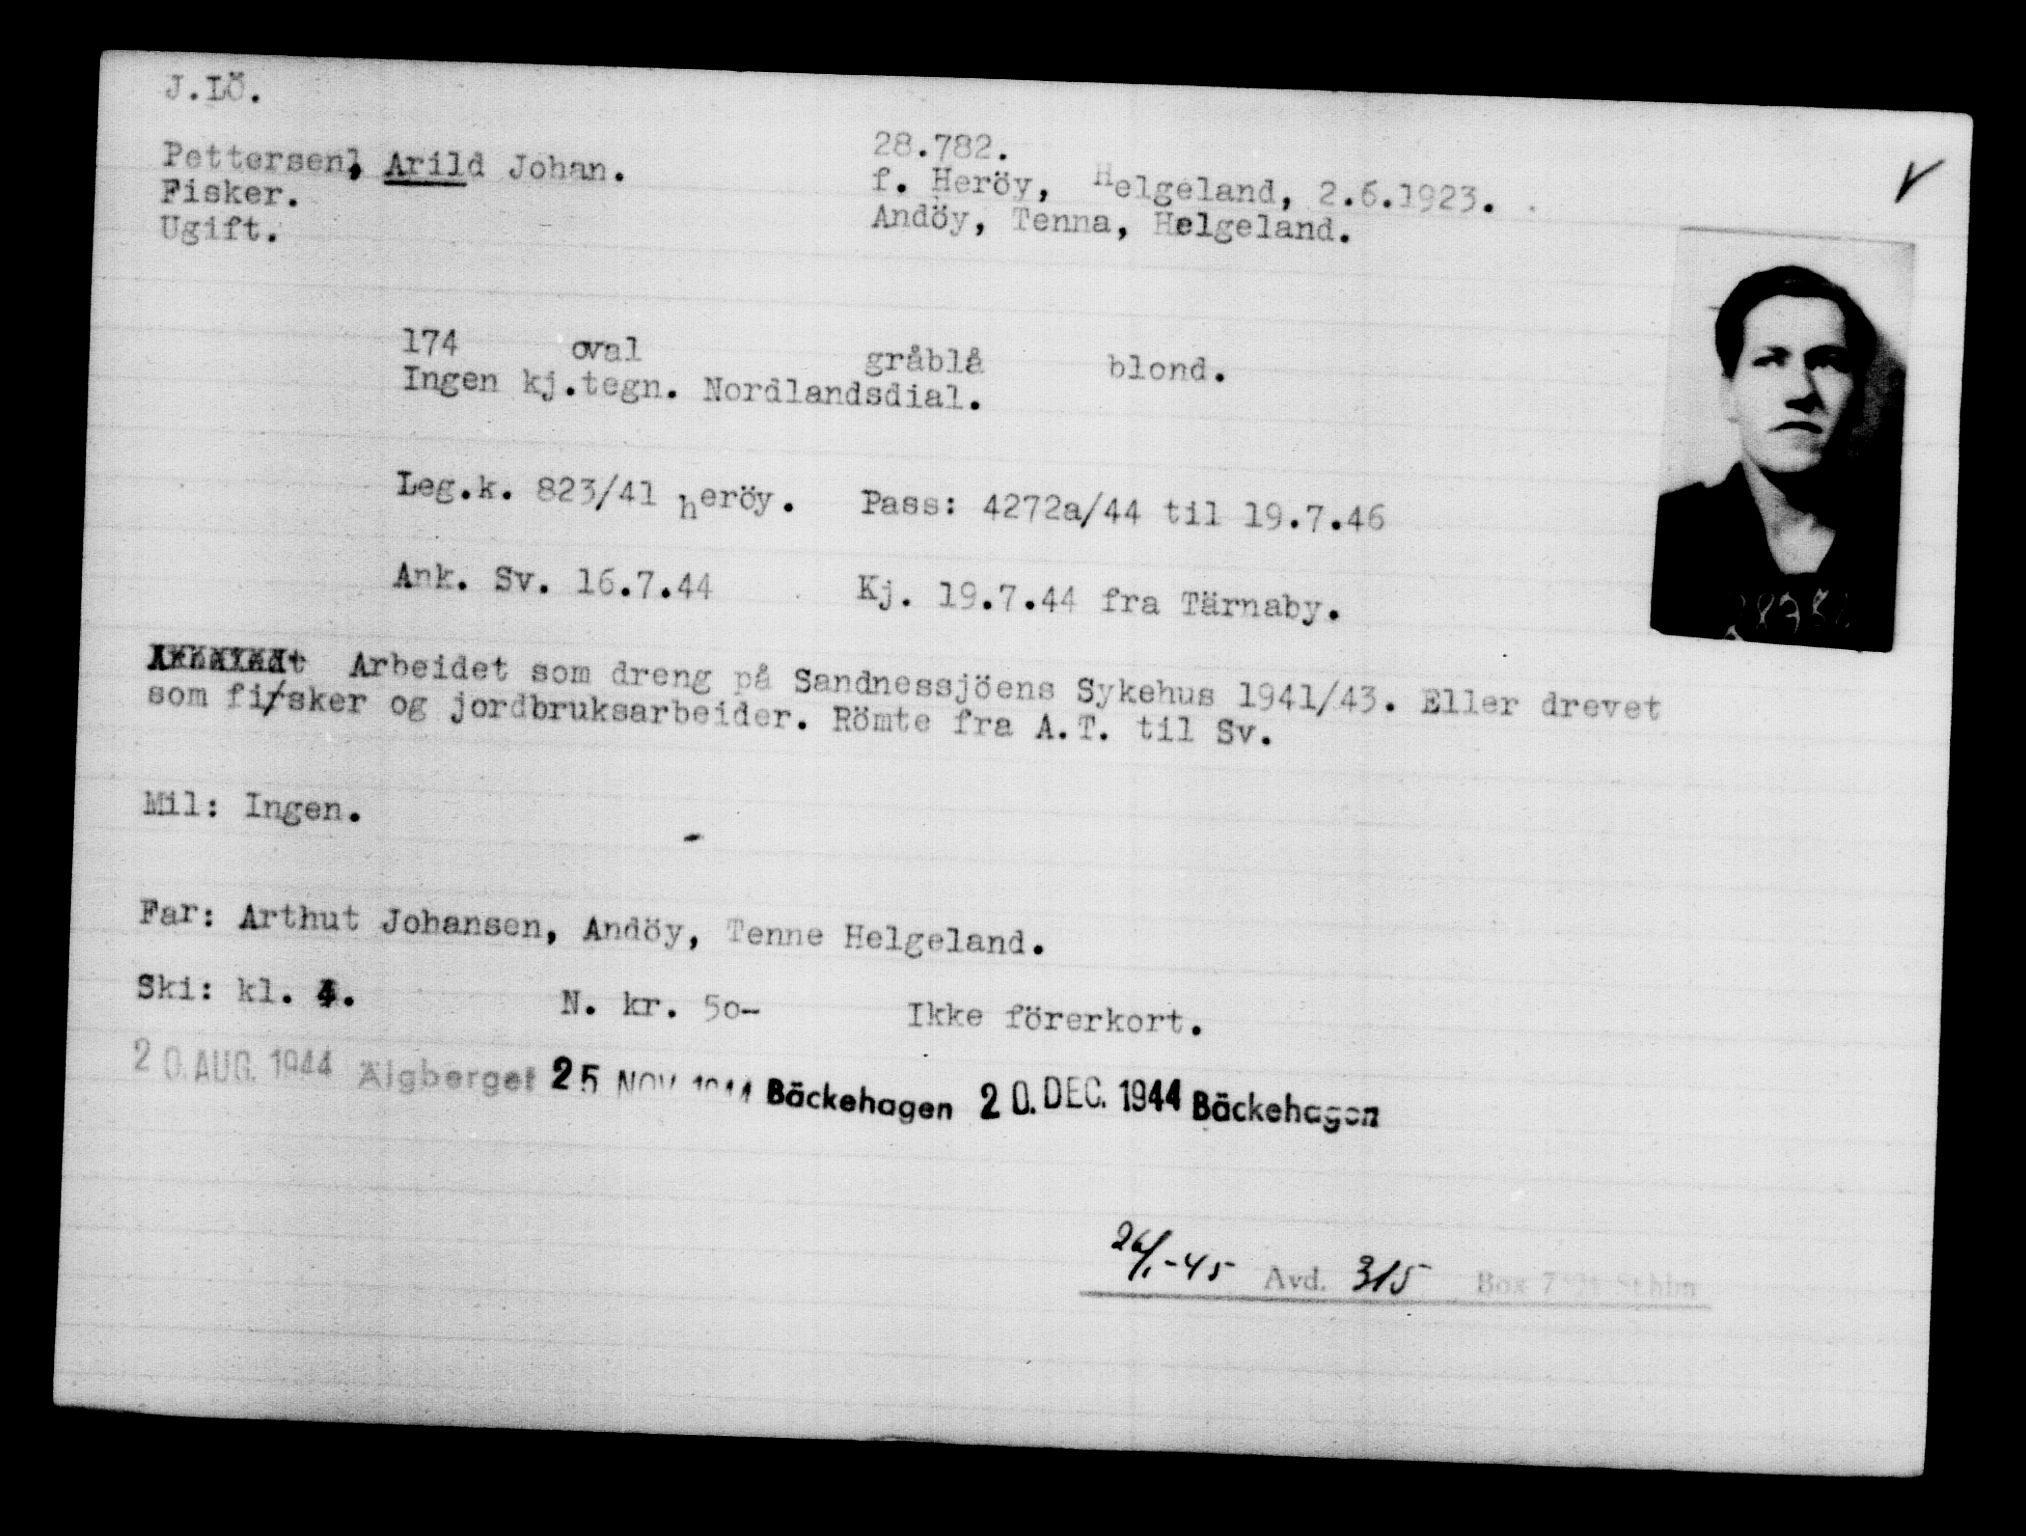 J.LÖ.
Pettersen, Arild Johan.
Fisker.
Ugift.
28.782.
f. Heröy, Helgeland, 2.6.1923.
Andöy, Tenna, Helgeland.
174 oval gråblå blond.
Ingen kj.tegn. Nordlandsdial.
Leg.k. 823/41 heröy. Pass: 4272a/44 til 19.7.46
Ank. Sv. 16.7.44 Kj. 19.7.44 fra Tärnaby.
Arbeidet som dreng på Sandnessjöens Sykehus 1941/43. Eller drevet
som fi/sker og jordbruksarbeider. Römte fra A.T. til Sv.
Mil: Ingen.
Far: Arthut Johansen, Andöy, Tenne Helgeland.
Ski: kl. 4. N. kr. 50- Ikke förerkort.
20. AUG. 1944 Älgberget 25 NOV 1944 Bäckehagen 20. DEC. 1944 Bäckehagen
26/1-45 Avd. 315 Box Sthlm